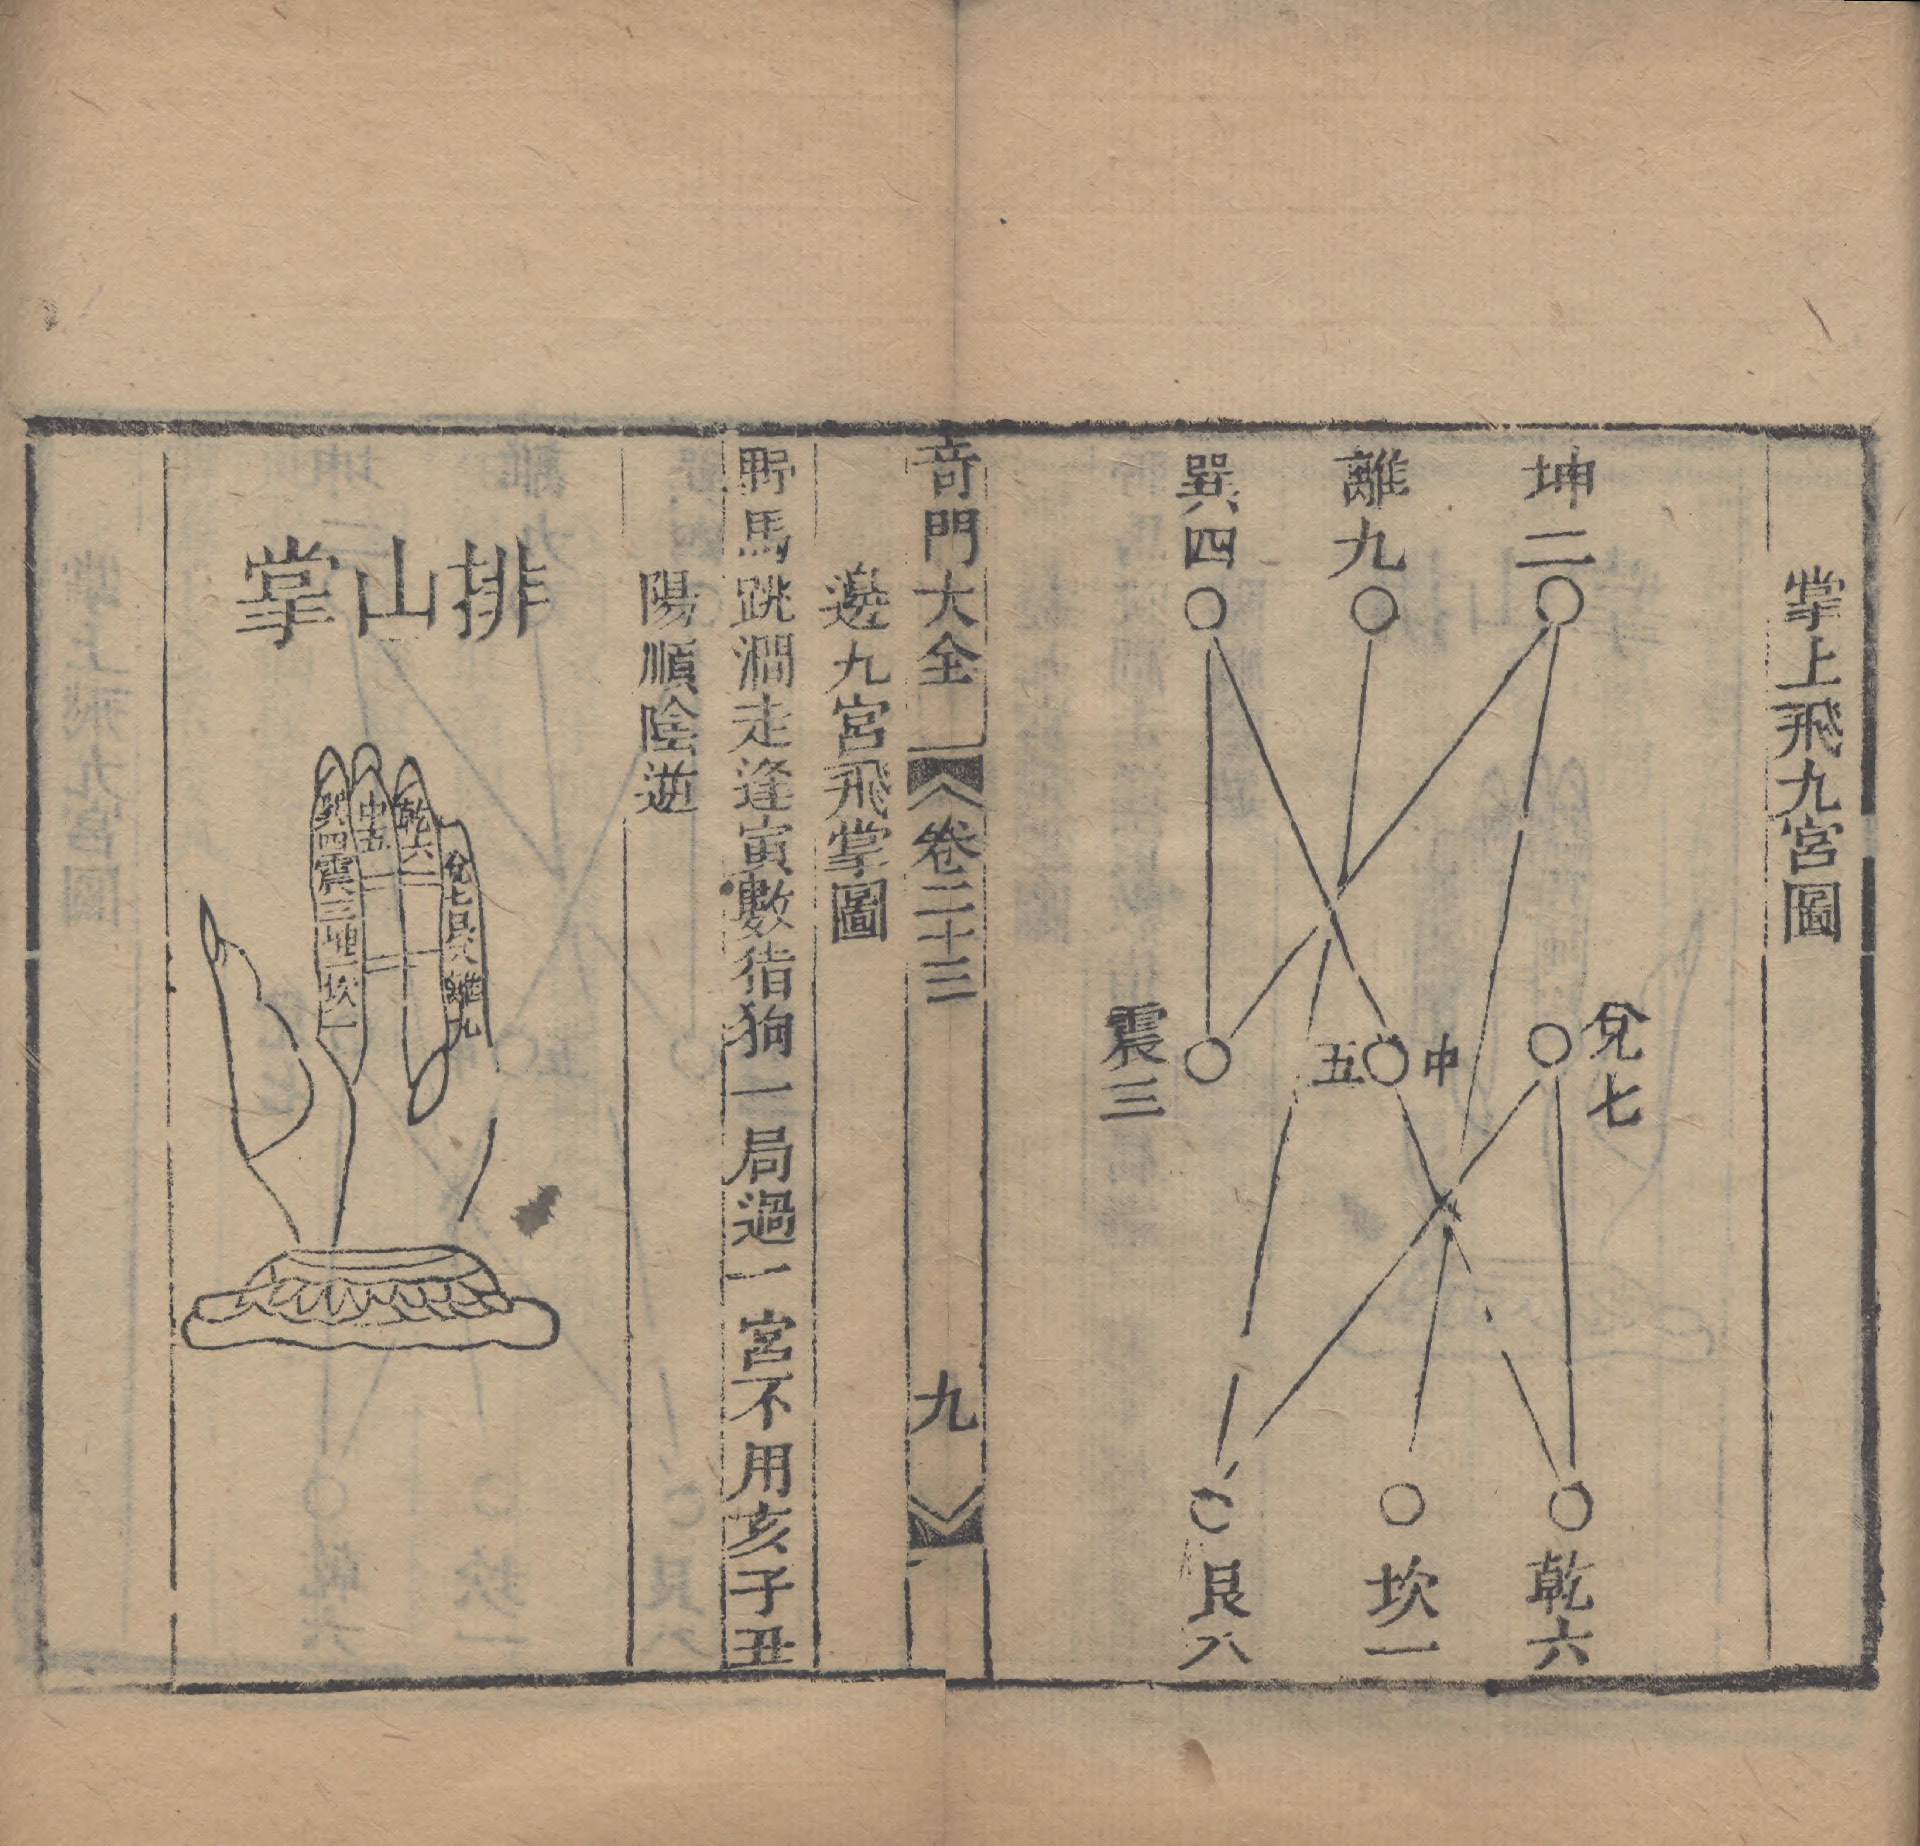 掌上飛九宮圖
坤二
離九
巽四
兌七
中五
震三
乾六
坎一
艮八
奇門大全
卷二十三
九
遶九宮飛掌圖
野馬跳澗走逢寅數猪狗一局過一宮不用亥子丑
陽順陰逆
排山掌
乾六
中五
巽四震三坤二坎一
兌七艮八離九